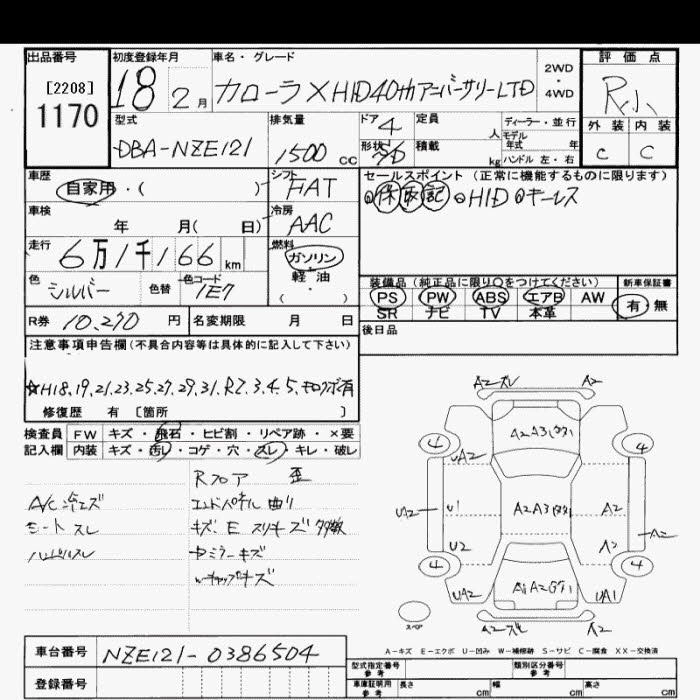 出品番号 初度登録年月 車名・グレード 評価点
[2208]
1170
18 2月 カローラXHID40thアニバーサリーLTD 2WD・4WD R小
型式 排気量 ドア 定員 ディーラー・並行 外装 内装
DBA-NZE121 1500cc 4 人 モデル年式 年 C C
形状 積載 kg ハンドル 左・右
車歴 シフト セールスポイント(正常に機能するものに限ります)
自家用・( ) FAT 保 取 記 HID キーレス
車検 年 月( 日) 冷房 AAC
走行 燃料
6万1千166km ガソリン・軽油・( )
色 シルバー 色替 色コード 1E7
装備品(純正品に限り○をつけてください) 新車保証書
PS PW ABS エアB AW 有・無
SR ナビ TV 本革
R券 10,270円 名変期限 月 日 後日品
注意事項申告欄(不具合内容等は具体的に記入して下さい)
☆H18.19.21.23.25.27.29.31.R2.3.4.5.キロク簿有
修復歴 有 [箇所 ]
検査員 FW キズ・飛石・ヒビ割・リペア跡・×要
記入欄 内装 キズ・汚レ・コゲ・穴・スレ・キレ・破レ
Rフロア 歪
エンドパネル 曲り
A/C 冷エズ
シート スレ キズ、E スリキズ 多数
ハンドルスレ 中ミラーキズ
wキャップキズ
A2ズレ A2
4 A2A3 4
UA2
UA2 U1 A2A3 A2 A2
U2 A2
4 4
UA2 A1A2 UA1
A2ズレ A2
スペア
A－キズ E－エクボ U－凹み W－補修跡 S－サビ C－腐食 XX－交換済
車台番号 NZE121-0386504
登録番号
型式指定番号 参考 類別区分番号 参考
車庫証明用 参考 長さ cm 幅 cm 高さ cm